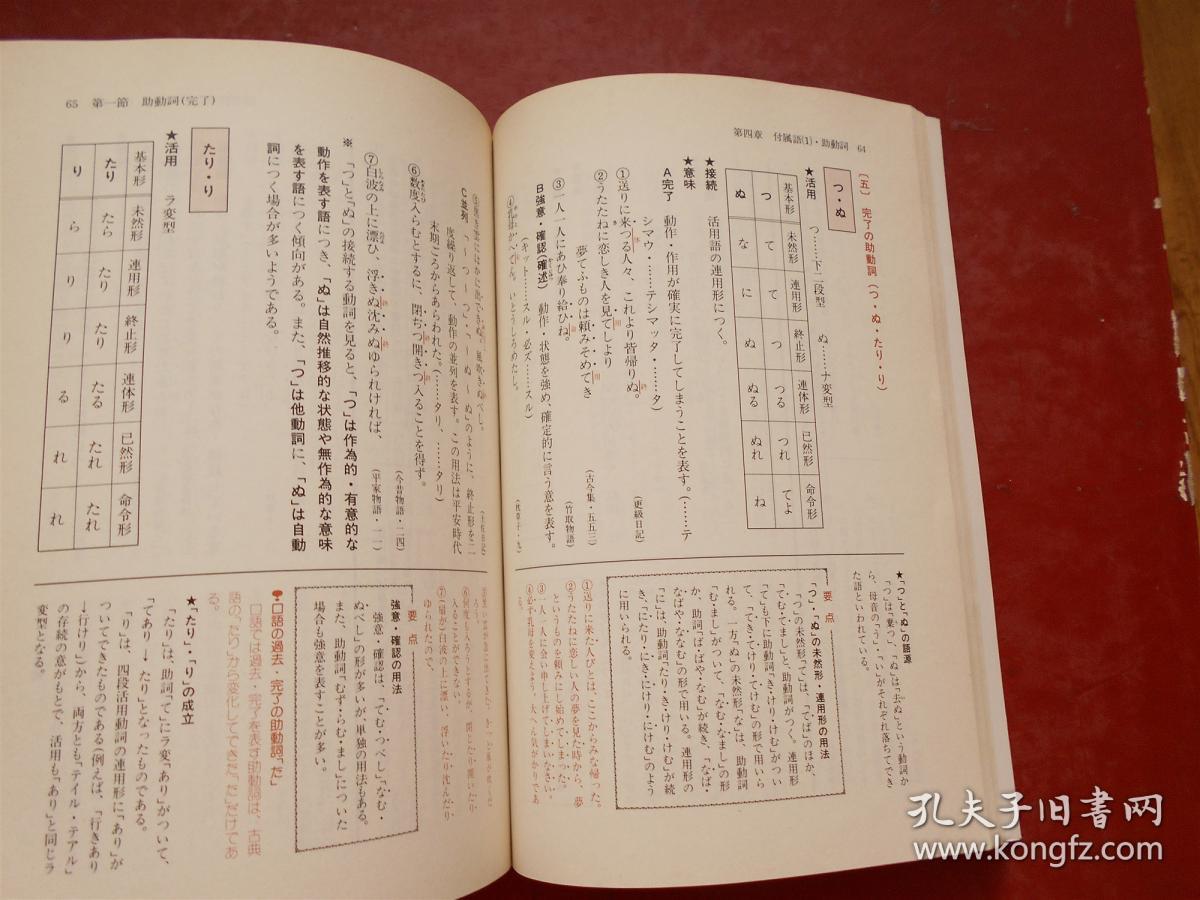 第四章　付属語⑴・助動詞　64
〔五〕　完了の助動詞（つ・ぬ・たり・り）
つ・ぬ
★活用　つ……下二段型　ぬ……ナ変型
基本形　未然形　連用形　終止形　連体形　已然形　命令形
つ　て　て　つ　つる　つれ　てよ
ぬ　な　に　ぬ　ぬる　ぬれ　ね
★接続　活用語の連用形につく。
★意味
A完了　動作・作用が確実に完了してしまうことを表す。（……テ
シマウ・……テシマッタ・……タ）
①送りに来つる人々、これより皆帰りぬ。（更級日記）
②うたたねに恋しき人を見てしより
夢てふものは頼みそめてき（古今集・五五三）
③一人一人にあひ奉り給ひね。（竹取物語）
B強意・確認（確述）　動作・状態を強め、確定的に言う意を表す。
（キット……スル・必ズ……スル）
★「つ」と「ぬ」の語源
「つ」は「棄つ」、「ぬ」は「去ぬ」という動詞か
ら、母音の「う」・「い」がそれぞれ落ちてでき
た語といわれている。
要点
「つ」・「ぬ」の未然形・連用形の用法
「つ」の未然形「て」は、「てば」のほか、
「てむ・てまし」と、助動詞がつく。連用形
「て」も下に助動詞「き・けり・けむ」がつい
て、「てき・てけり・てけむ」の形で用いら
れる。一方、「ぬ」の未然形「な」は、助動詞
「む・まし」がついて、「なむ・なまし」の形
か、助詞「ば・ばや・なむ」が続き、「なば・
なばや・ななむ」の形で用いる。連用形の
「に」は、助動詞「たり・き・けり・けむ」が続
き、「にたり・にき・にけり・にけむ」のよう
に用いられる。
①送りに来た人びとは、ここからみな帰った。
②うたたねに恋しい人の夢を見た時から、夢
というものを頼みにし始めてしまった。
③一人一人に会い申しあげてしまいなさい。
65　第一節　助動詞（完了）
C並列　「〜つ〜つ」・「〜ぬ〜ぬ」のように、終止形を二
度繰り返して、動作の並列を表す。この用法は平安時代
末期ころからあらわれた。（……タリ、……タリ）
⑥数度入らむとするに、閉ぢつ開きつ入ることを得ず。（今昔物語・二四）
⑦白波の上に漂ひ、浮きぬ沈みぬゆられければ、（平家物語・一一）
※　「つ」と「ぬ」の接続する動詞を見ると、「つ」は作為的・有意的な
動作を表す語につき、「ぬ」は自然推移的な状態や無作為的な意味
を表す語につく傾向がある。また、「つ」は他動詞に、「ぬ」は自動
詞につく場合が多いようである。
たり・り
★活用　ラ変型
基本形　未然形　連用形　終止形　連体形　已然形　命令形
たり　たら　たり　たり　たる　たれ　たれ
り　ら　り　り　る　れ　れ
要点
強意・確認の用法
強意・確認は、「てむ・つべし」、「なむ・
ぬべし」の形が多いが、単独の用法もある。
また、助動詞「むず・らむ・まし」についた
場合も強意を表すことが多い。
口語の過去・完了の助動詞「だ」
口語では過去・完了を表す助動詞は、古典
語の「たり」から変化してできた「だ」だけであ
る。
★「たり」・「り」の成立
「たり」は、助詞「て」にラ変「あり」がついて、
「てあり→たり」となったものである。
「り」は、四段活用動詞の連用形に「あり」が
ついてできたものである（例えば、「行きあり
→行けり」）から、両方とも「テイル・テアル」
の存続の意がもとで、活用も「あり」と同じラ
変型となる。
孔夫子旧书网
www.kongfz.com